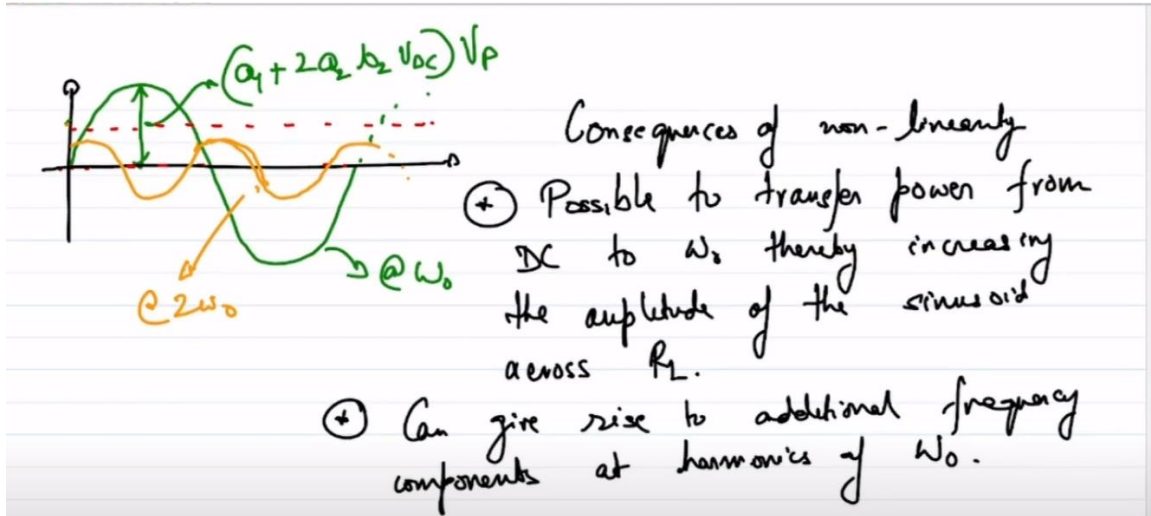 (a₁ + 2a₂ b₂ V_DC) V_P
Consequences of non-linearity
* Possible to transfer power from
DC to ω₀ thereby increasing
@ ω₀
@ 2ω₀
the amplitude of the sinusoid
across R_L.
* Can give rise to additional frequency
components at harmonics of ω₀.